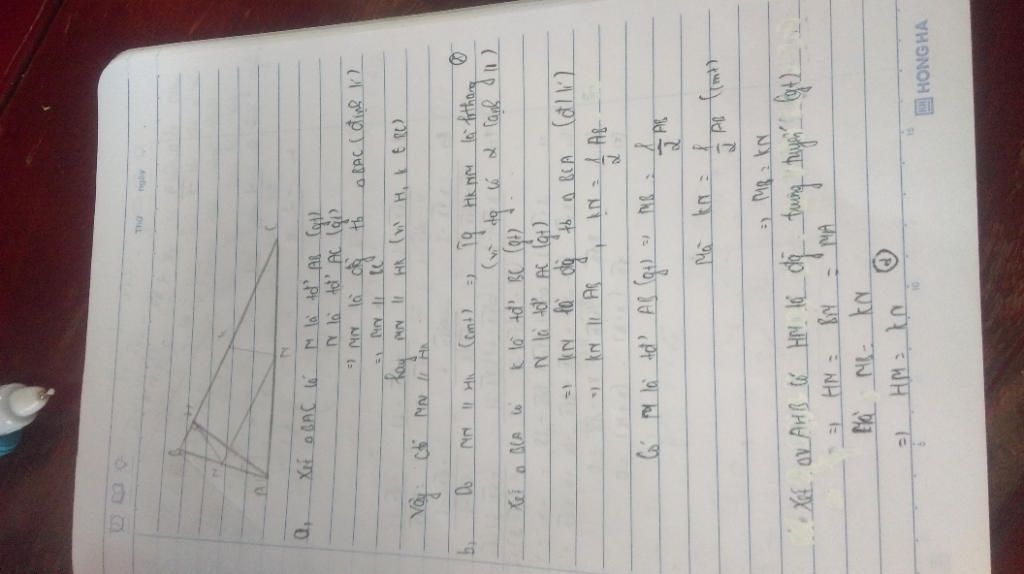 Thứ ngày
B
H
K
M
A
N
C
a, Xét △BAC có M là tđ' AB (gt)
N là tđ' AC (gt)
=> MN là đg tb △BAC (định lí)
=> MN // BC
hay MN // HK (vì H, K ∈ BC)
Vậy: Có MN // HK
b, Do MN // HK (cmt) => Tg HKMN là hthang
(vì tg có 2 cạnh đ //)
Xét △BCA có K là tđ' BC (gt)
N là tđ' AC (gt)
=> KN là đg tb △BCA (đ/lí)
=> KN // AB, KN = 1/2 AB
Có M là tđ' AB (gt) => MB = 1/2 AB
Mà KN = 1/2 AB (cmt)
=> MB = KN
Xét △v AHB có HM là đg trung tuyến (gt)
=> HM = BM = MA
Mà MB = KN
=> HM = KN (2)
HONG HA
5
10
15